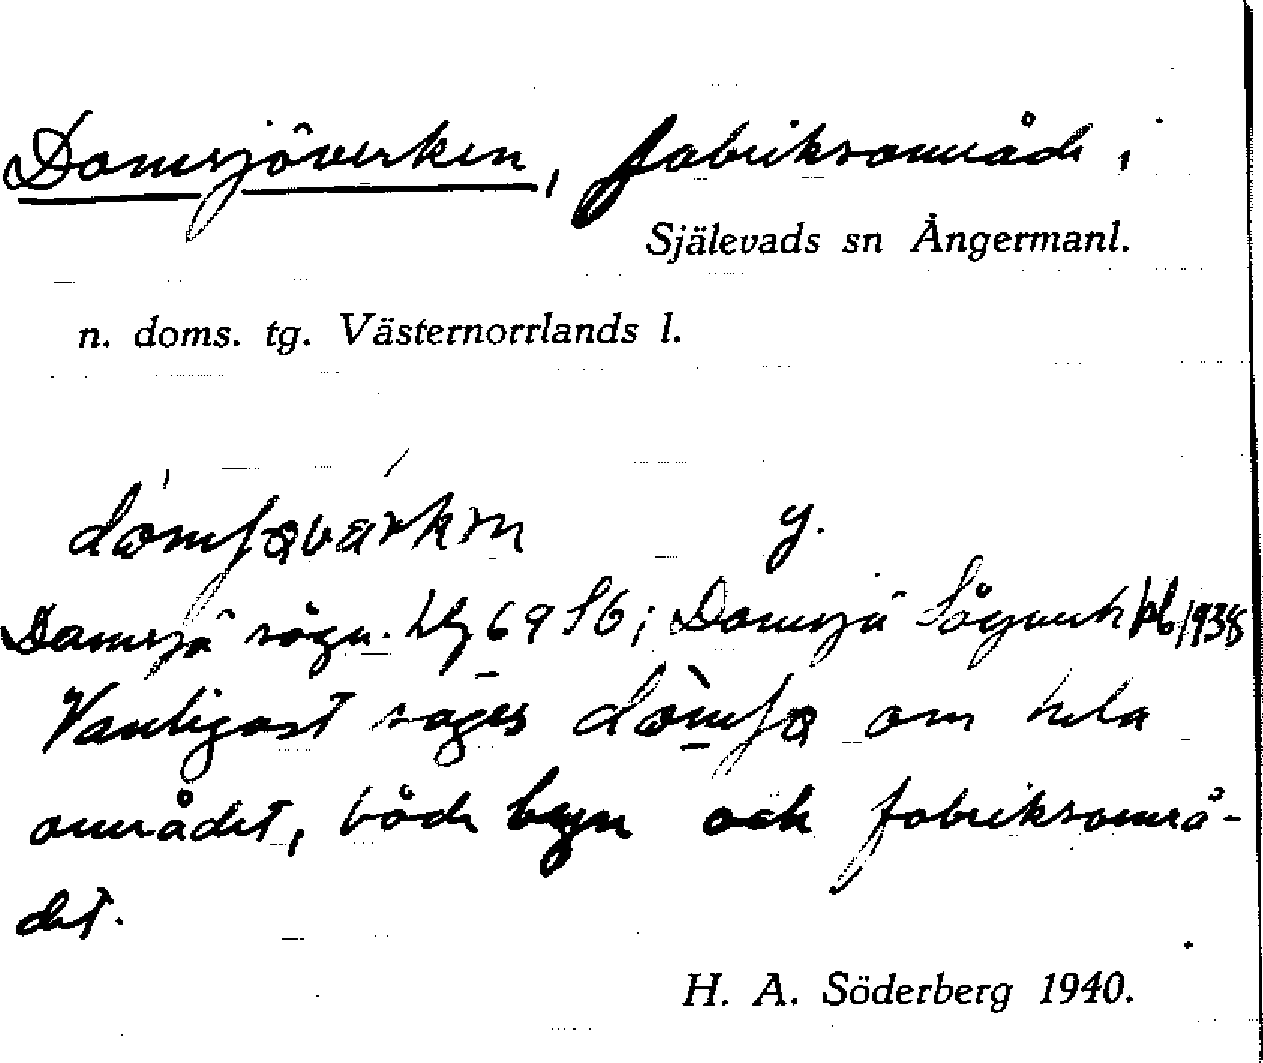 Domsjöverken, fabriksområde i
Själevads sn Ångermanl.
n. doms. tg. Västernorrlands l.
y.
Domsjö sågv. Hg 69 S6; Domsjö Sågverk Hb 1938
Vanligast säges om hela
området, både byn och fabriksområ-
det.
H. A. Söderberg 1940.